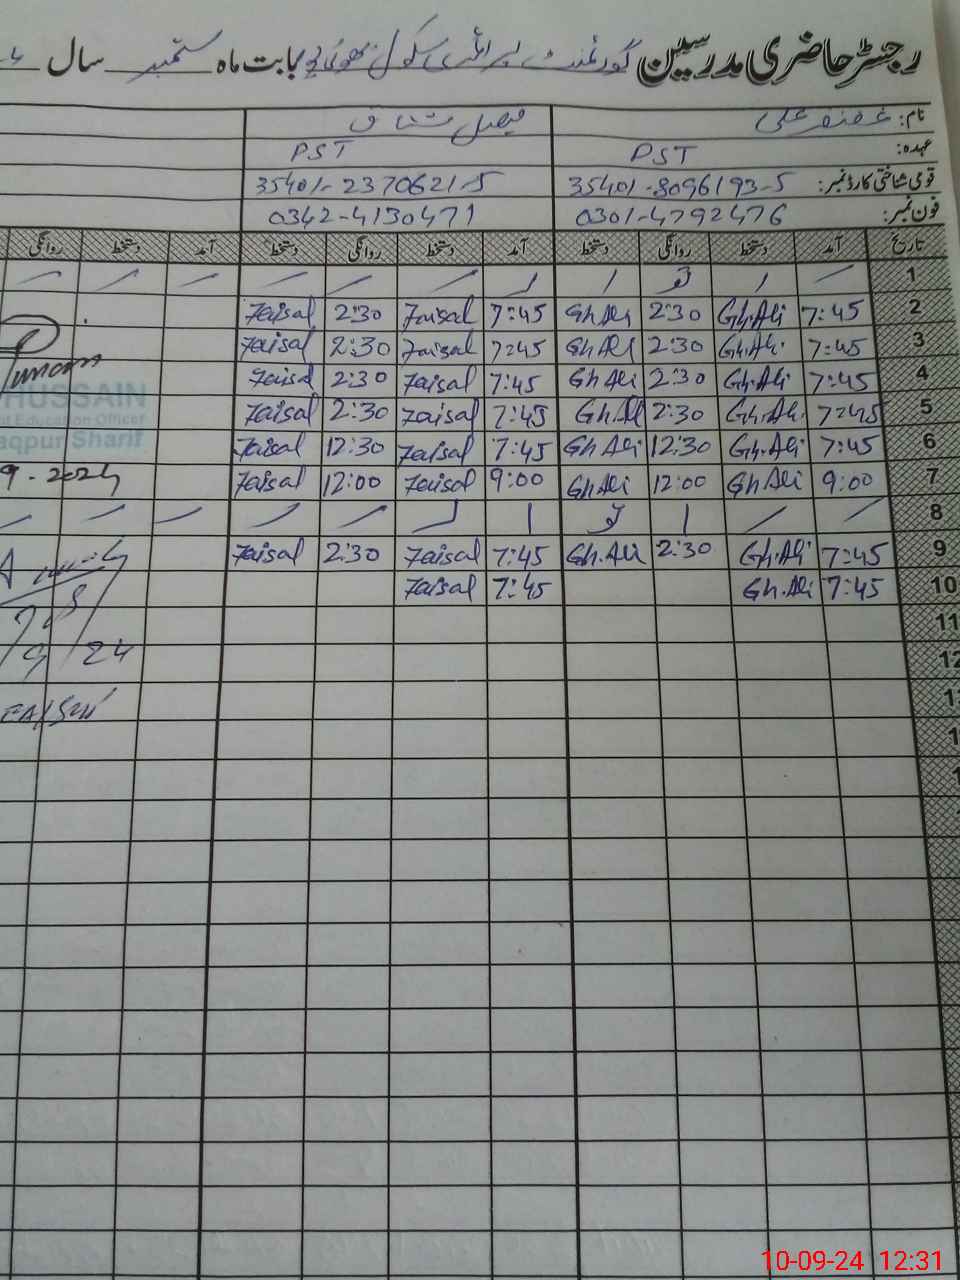 رجسٹر حاضری مدرسین گورنمنٹ پرائمری سکول بابت ماہ ستمبر سال
نام: غضنفر علی فیصل مشتاق
عہدہ: PST PST
قومی شناختی کارڈ نمبر: 35401-8096193-5 35401-2370621-5
فون نمبر: 0301-4792476 0342-4130471
تاریخ آمد دستخط روانگی دستخط آمد دستخط روانگی دستخط آمد دستخط روانگی
1
2 7:45 Gh.Ali 2:30 Gh Ali 7:45 Faisal 2:30 Faisal
3 7:45 Gh.Ali 2:30 Gh Ali 7:45 Faisal 2:30 Faisal
4 7:45 Gh.Ali 2:30 Gh Ali 7:45 Faisal 2:30 Faisal
5 7:45 Gh.Ali 2:30 Gh.Ali 7:45 Faisal 2:30 Faisal
6 7:45 Gh.Ali 12:30 Gh Ali 7:45 Faisal 12:30 Faisal
7 9:00 Gh Ali 12:00 Gh Ali 9:00 Faisal 12:00 Faisal
8
9 7:45 Gh.Ali 2:30 Gh.Ali 7:45 Faisal 2:30 Faisal
10 7:45 Gh.Ali 7:45 Faisal
11
12
HUSSAIN
Education Officer
aqpur Sharif
9-2024
9/24
10-09-24 12:31